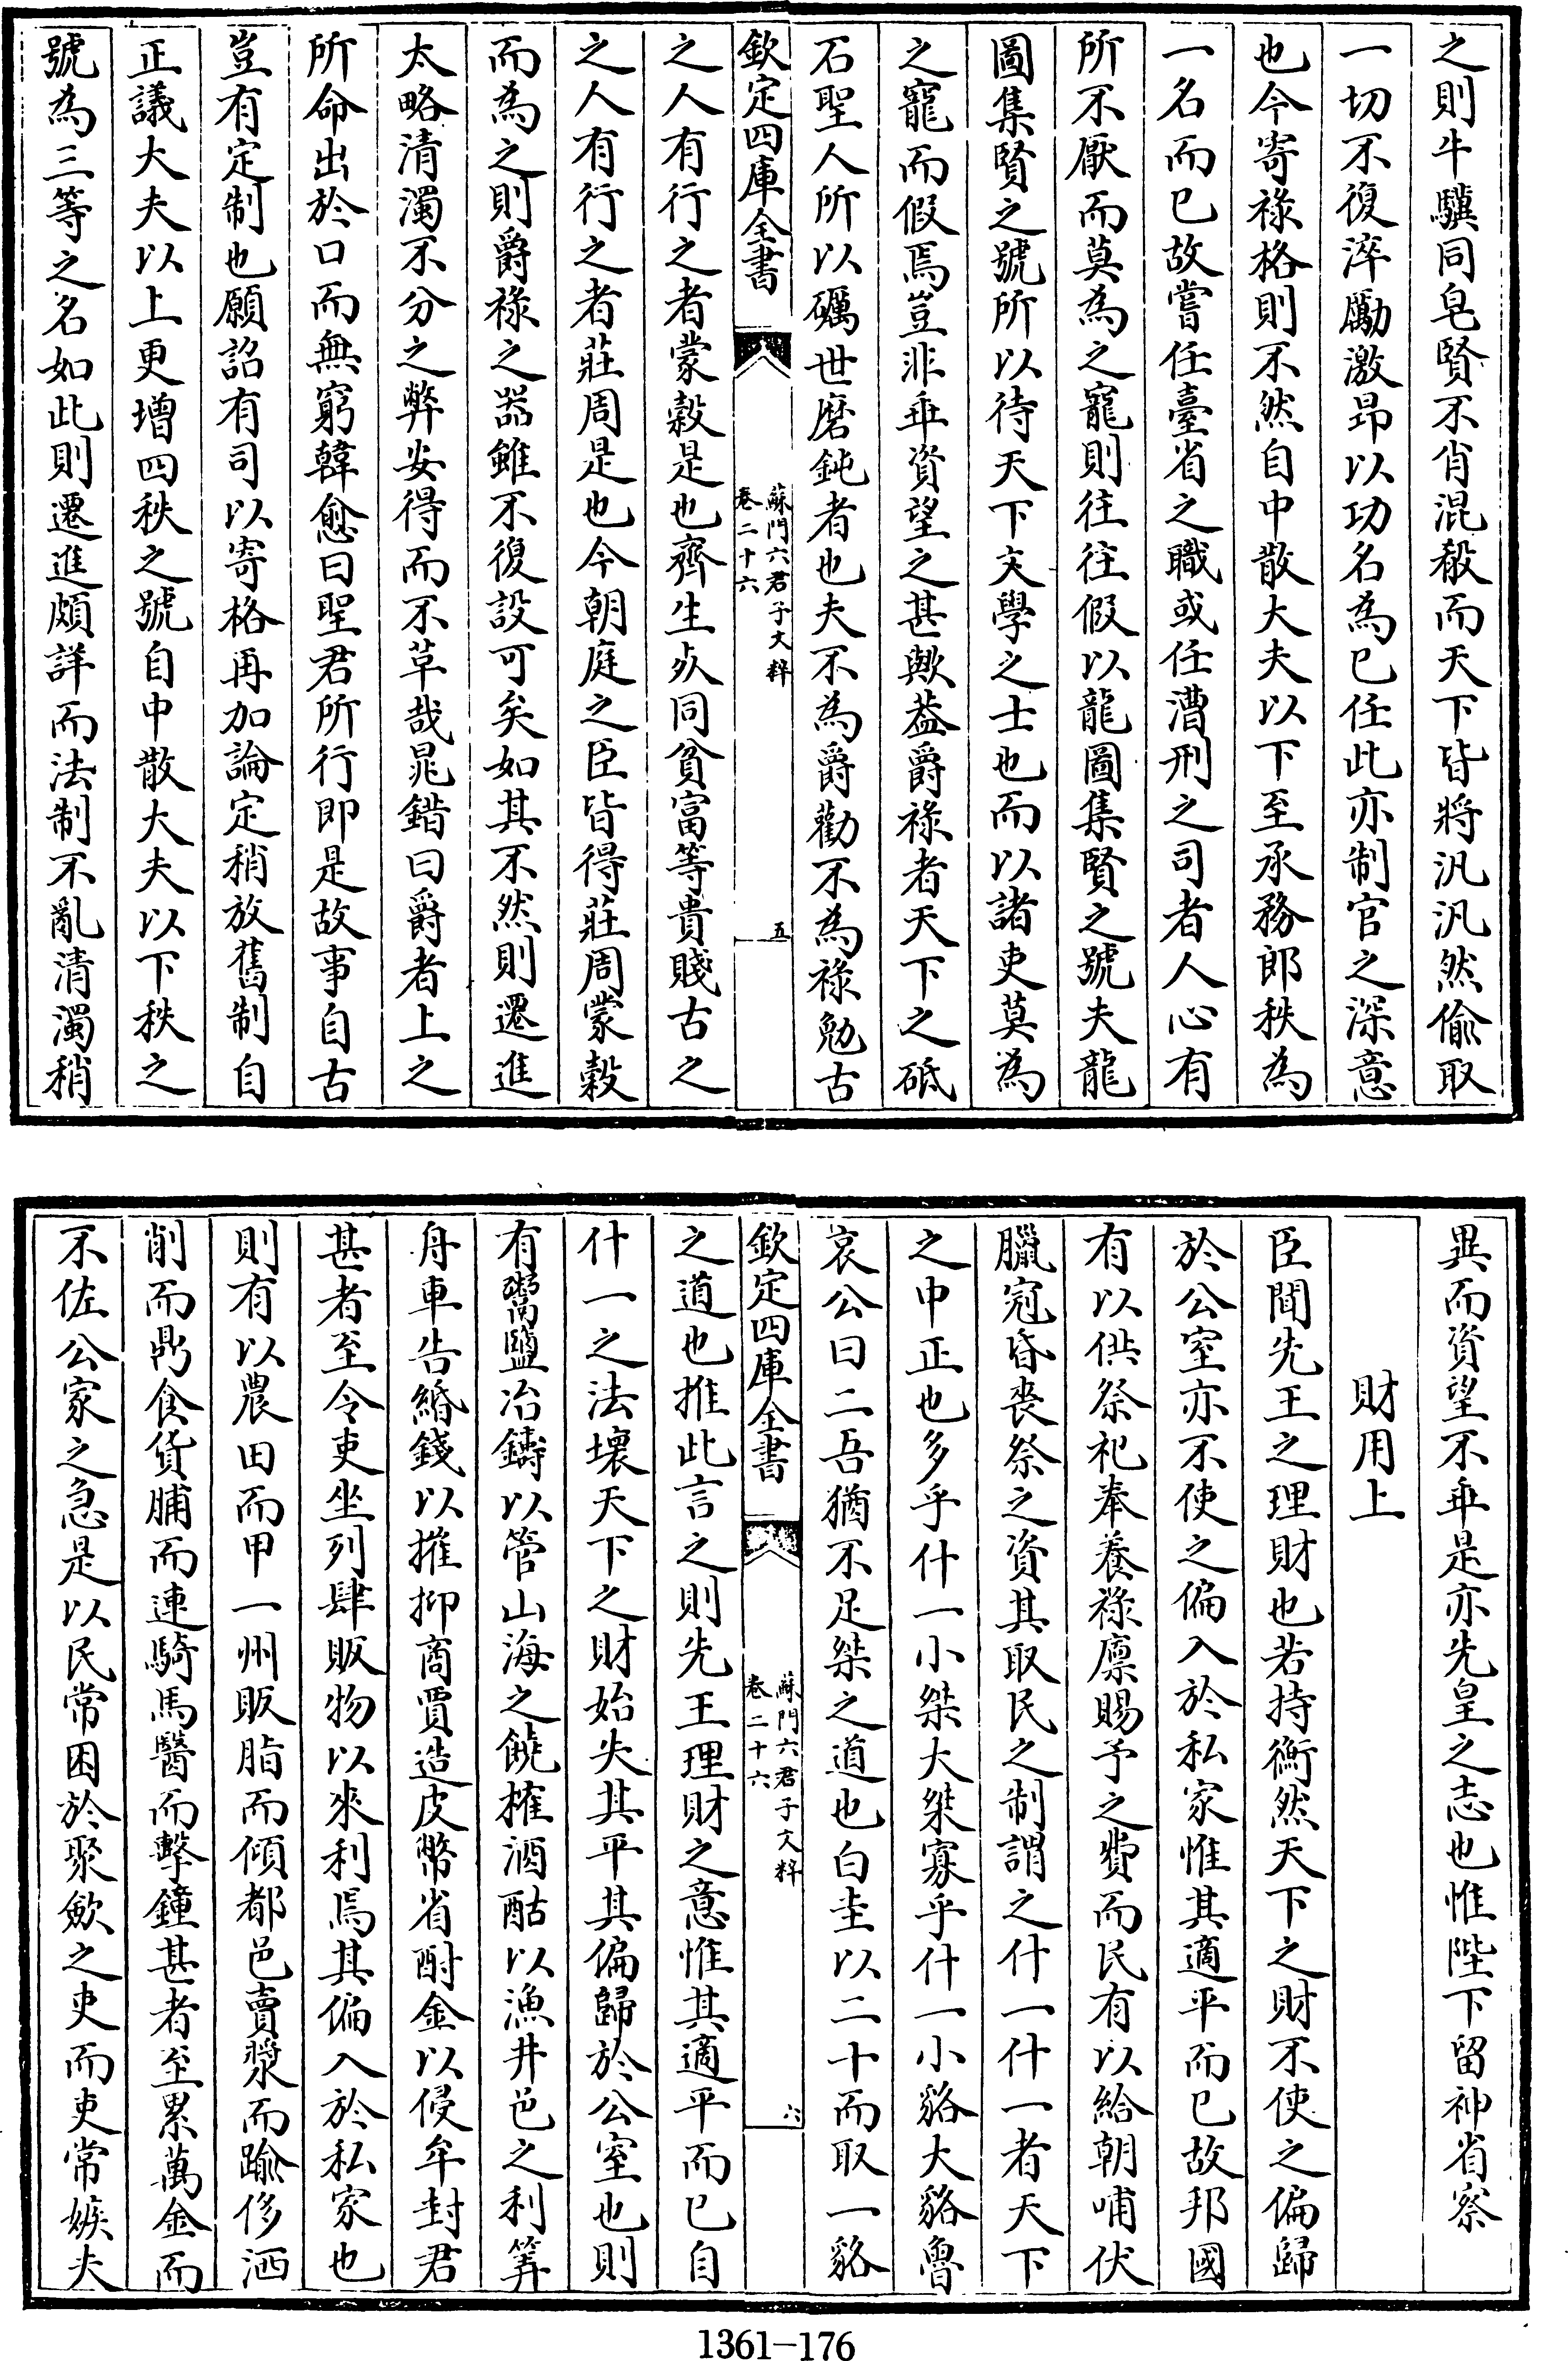 之則牛驥同皂賢不肖混殽而天下皆將汎汎然偷取
一切不復淬勵激昻以功名為已任此亦制官之深意
也今寄祿格則不然自中散大夫以下至承務郎秩為
一名而已故嘗任臺省之職或任漕刑之司者人心有
所不厭而莫為之寵則往往假以龍圖集賢之號夫龍
圖集賢之號所以待天下文學之士也而以諸吏莫為
之寵而假焉豈非乖資望之甚歟葢爵祿者天下之砥
石聖人所以礪世磨鈍者也夫不為爵勸不為祿勉古
欽定四庫全書
蘇門六君子文粹
卷二十六
五
之人有行之者蒙榖是也齊生死同貧富等貴賤古之
之人有行之者莊周是也今朝庭之臣皆得莊周蒙榖
而為之則爵祿之器雖不復設可矣如其不然則遷進
太略清濁不分之弊安得而不草哉晁錯曰爵者上之
所命出於口而無窮韓愈曰聖君所行即是故事自古
豈有定制也願詔有司以寄格再加論定稍放舊制自
正議大夫以上更增四秩之號自中散大夫以下秩之
號為三等之名如此則遷進頗詳而法制不亂清濁稍
異而資望不乖是亦先皇之志也惟陛下留神省察
財用上
臣聞先王之理財也若持衡然天下之財不使之偏歸
於公室亦不使之偏入於私家惟其適平而已故邦國
有以供祭祀奉養祿廪賜予之費而民有以給朝哺伏
臘冠昏喪祭之資其取民之制謂之什一什一者天下
之中正也多乎什一小桀大桀寡乎什一小貉大貉魯
哀公曰二吾猶不足桀之道也白圭以二十而取一貉
欽定四庫全書
蘇門六君子文粹
卷二十六
六
之道也推此言之則先王理財之意惟其適平而已自
什一之法壞天下之財始失其平其偏歸於公室也則
有鬻鹽冶鑄以管山海之饒榷酒酤以漁井邑之利筭
舟車告緡錢以摧抑商賈造皮幣省酎金以侵牟封君
甚者至令吏坐列肆販物以來利焉其偏入於私家也
則有以農田而甲一州販脂而傾都邑賣漿而踰侈洒
削而鼎食貨脯而連騎馬醫而擊鐘甚者至累萬金而
不佐公家之急是以民常困於聚歛之吏而吏常嫉夫
1361-176